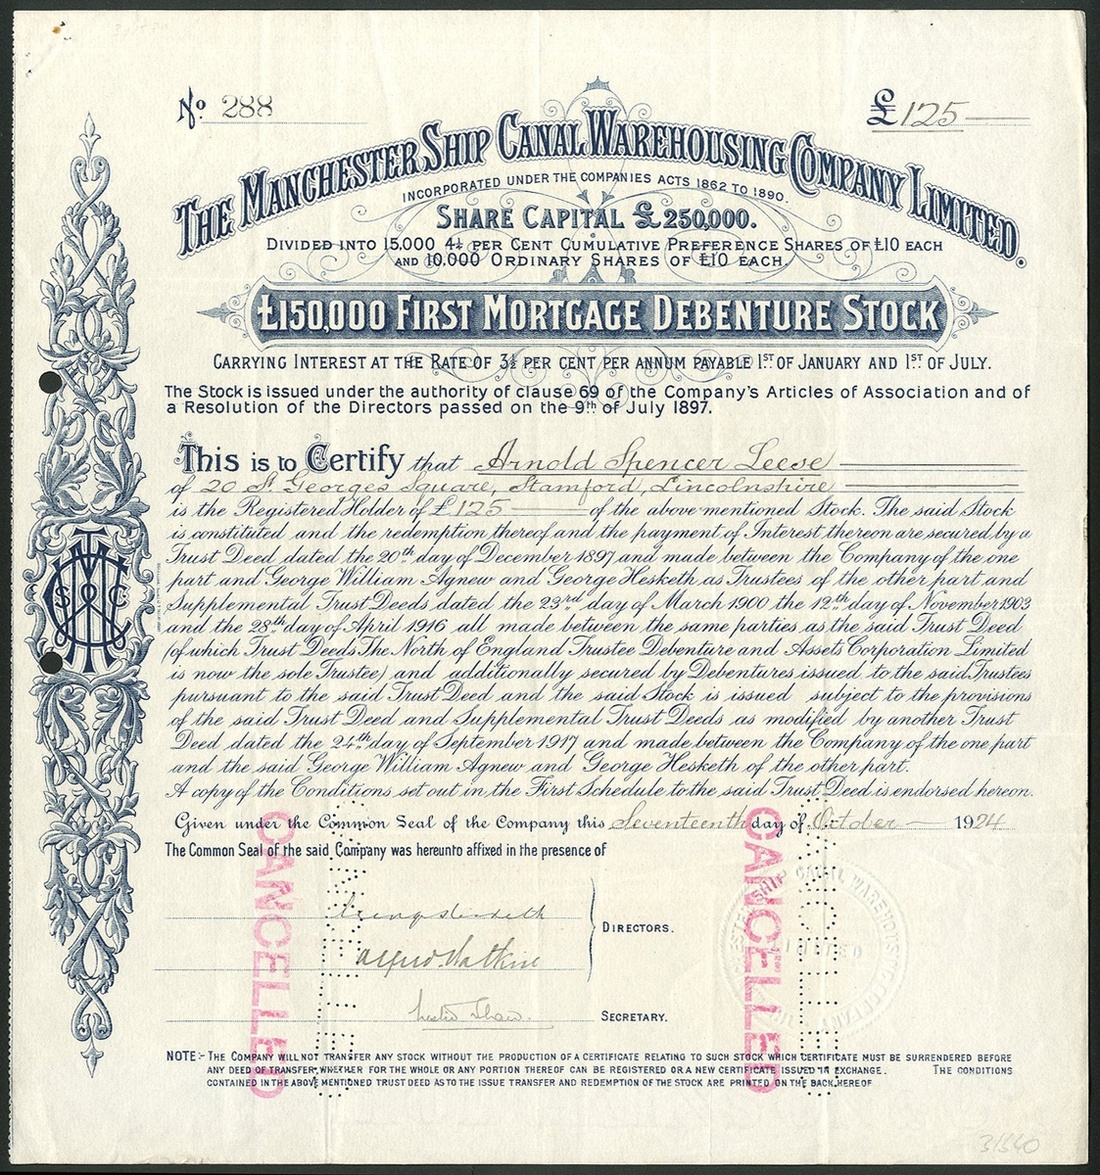 No 288
£125
THE MANCHESTER SHIP CANAL WAREHOUSING COMPANY LIMITED.
INCORPORATED UNDER THE COMPANIES ACTS 1862 TO 1890.
SHARE CAPITAL £250,000.
DIVIDED INTO 15,000 4½ PER CENT CUMULATIVE PREFERENCE SHARES OF £10 EACH
AND 10,000 ORDINARY SHARES OF £10 EACH.
£150,000 FIRST MORTGAGE DEBENTURE STOCK
CARRYING INTEREST AT THE RATE OF 3½ PER CENT PER ANNUM PAYABLE 1ST OF JANUARY AND 1ST OF JULY.
The Stock is issued under the authority of clause 69 of the Company's Articles of Association and of
a Resolution of the Directors passed on the 9th of July 1897.
This is to Certify that Arnold Spencer Leese
of 20 St Georges Square, Stamford, Lincolnshire
is the Registered Holder of £125 of the above mentioned Stock. The said Stock
is constituted and the redemption thereof and the payment of Interest thereon are secured by a
Trust Deed dated the 20th day of December 1897 and made between the Company of the one
part and George William Agnew and George Hesketh as Trustees of the other part and
Supplemental Trust Deeds dated the 23rd day of March 1900 the 12th day of November 1903
and the 28th day of April 1916 all made between the same parties as the said Trust Deed
(of which Trust Deeds The North of England Trustee Debenture and Assets Corporation Limited
is now the sole Trustee) and additionally secured by Debentures issued to the said Trustees
pursuant to the said Trust Deed and the said Stock is issued subject to the provisions
of the said Trust Deed and Supplemental Trust Deeds as modified by another Trust
Deed dated the 24th day of September 1917 and made between the Company of the one part
and the said George William Agnew and George Hesketh of the other part.
A copy of the Conditions set out in the First Schedule to the said Trust Deed is endorsed hereon.
Given under the Common Seal of the Company this Seventeenth day of October 1924
The Common Seal of the said Company was hereunto affixed in the presence of
CANCELLED
CANCELLED
DIRECTORS.
Alfred Watkin
SECRETARY.
NOTE:- THE COMPANY WILL NOT TRANSFER ANY STOCK WITHOUT THE PRODUCTION OF A CERTIFICATE RELATING TO SUCH STOCK WHICH CERTIFICATE MUST BE SURRENDERED BEFORE
ANY DEED OF TRANSFER, WHETHER FOR THE WHOLE OR ANY PORTION THEREOF CAN BE REGISTERED OR A NEW CERTIFICATE ISSUED IN EXCHANGE. THE CONDITIONS
CONTAINED IN THE ABOVE MENTIONED TRUST DEED AS TO THE ISSUE TRANSFER AND REDEMPTION OF THE STOCK ARE PRINTED ON THE BACK HEREOF